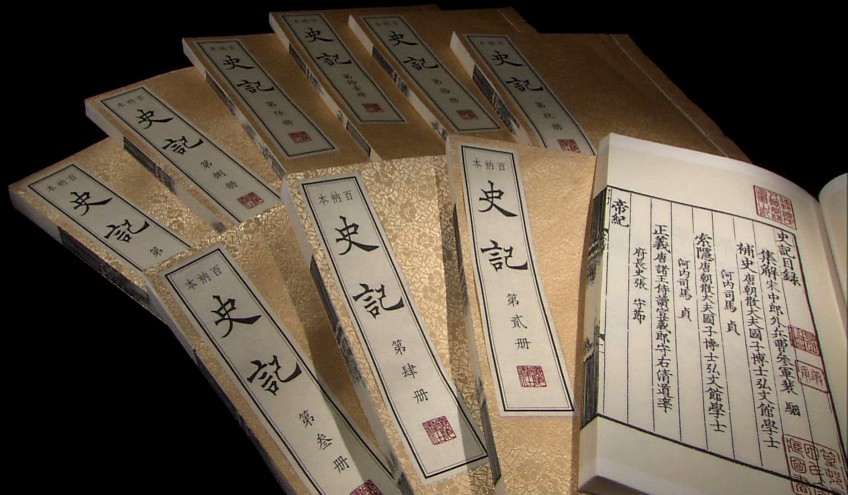 百衲本
史記
第
百衲本
史記
第捌册
史記
第陸册
史記
第拾壹册
史記
第拾册
史記
第玖册
百衲本
史記
第叁册
百衲本
史記
第肆册
百衲本
史記
第貳册
史記目錄
集解宋中郎外兵曹參軍裴 駰
補史唐朝散大夫國子博士弘文館學士
河内司馬 貞
索隱唐朝散大夫國子博士弘文館學士
河内司馬 貞
正義唐諸王侍讀宣義郎守右清道率
府長史張 守節
帝紀